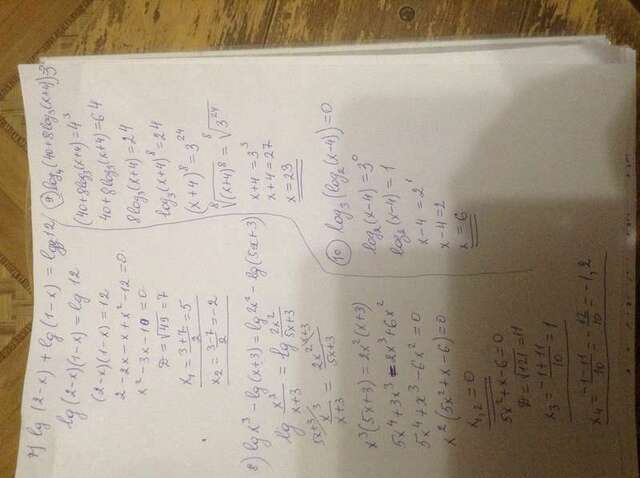 7) lg (2-x) + lg(1-x) = lg 12
lg(2-x)(1-x) = lg 12
(2-x)(1-x) = 12
2-2x-x+x²-12 = 0
x²-3x-10 = 0
D = √49 = 7
x₁ = (3+7)/2 = 5
x₂ = (3-7)/2 = -2
8) lg x³ - lg(x+3) = lg 2x² - lg(5x+3)
lg x³/(x+3) = lg 2x²/(5x+3)
x³/(x+3) = 2x²/(5x+3)
x³(5x+3) = 2x²(x+3)
5x⁴+3x³ = 2x³+6x²
5x⁴+x³-6x² = 0
x²(5x²+x-6) = 0
x₁,₂ = 0
5x²+x-6 = 0
D = √121 = 11
x₃ = (-1+11)/10 = 1
x₄ = (-1-11)/10 = -12/10 = -1,2
9) log₄(40+8log₃(x+4)) = 3
(40+8log₃(x+4) = 4³
40+8log₃(x+4) = 64
8log₃(x+4) = 24
log₃(x+4)⁸ = 24
(x+4)⁸ = 3²⁴
⁸√(x+4)⁸ = ⁸√3²⁴
x+4 = 3³
x+4 = 27
x = 23
10) log₃(log₂(x-4)) = 0
log₂(x-4) = 3⁰
log₂(x-4) = 1
x-4 = 2¹
x-4 = 2
x = 6